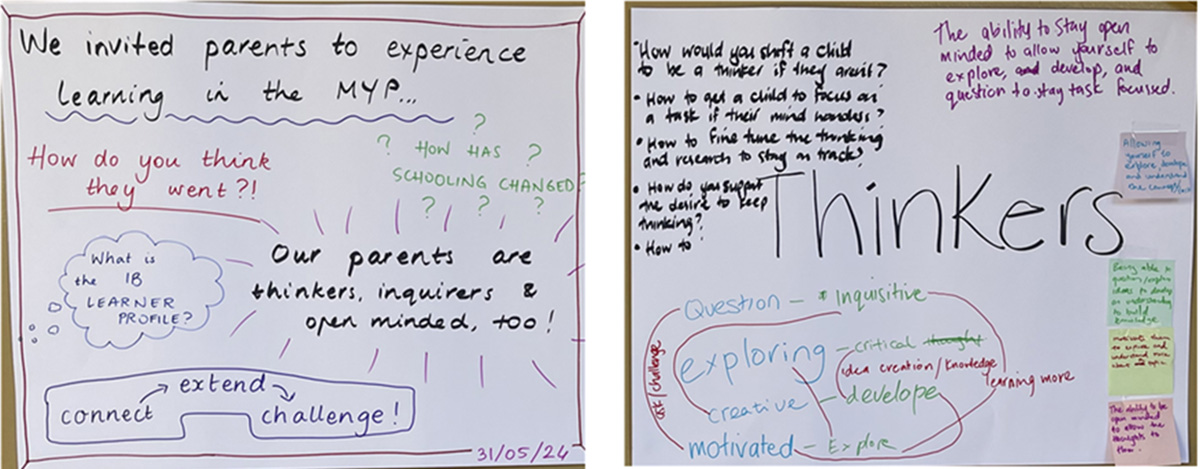 We invited parents to experience
learning in the MYP...
How do you think
they went?!
? ? ?
HOW HAS
SCHOOLING CHANGED?
? ? ?
What is
the IB
LEARNER
PROFILE?
Our parents are
thinkers, inquirers &
open minded, too!
connect extend challenge!
31/05/24
• How would you shift a child
to be a thinker if they aren't?
• How to get a child to focus on
a task if their mind
• How to fine tune the thinking
and research to stay on track?
• How do you support
the desire to keep
thinking?
• How to
The ability to stay open
minded to allow yourself to
explore, and develop, and
question to stay task focussed.
Allowing
yourself to
explore,
and understand
the
Thinkers
Being able to
question/explore
ideas to develop
an understanding
to build
knowledge
motivates them
to explore and
understand more
above topic
The ability to be
open minded
to allow the
thoughts to
Question – * Inquisitive
exploring – critical thought
idea creation/knowledge
learning more
creative – develope
motivated – Explore
ask/challenge